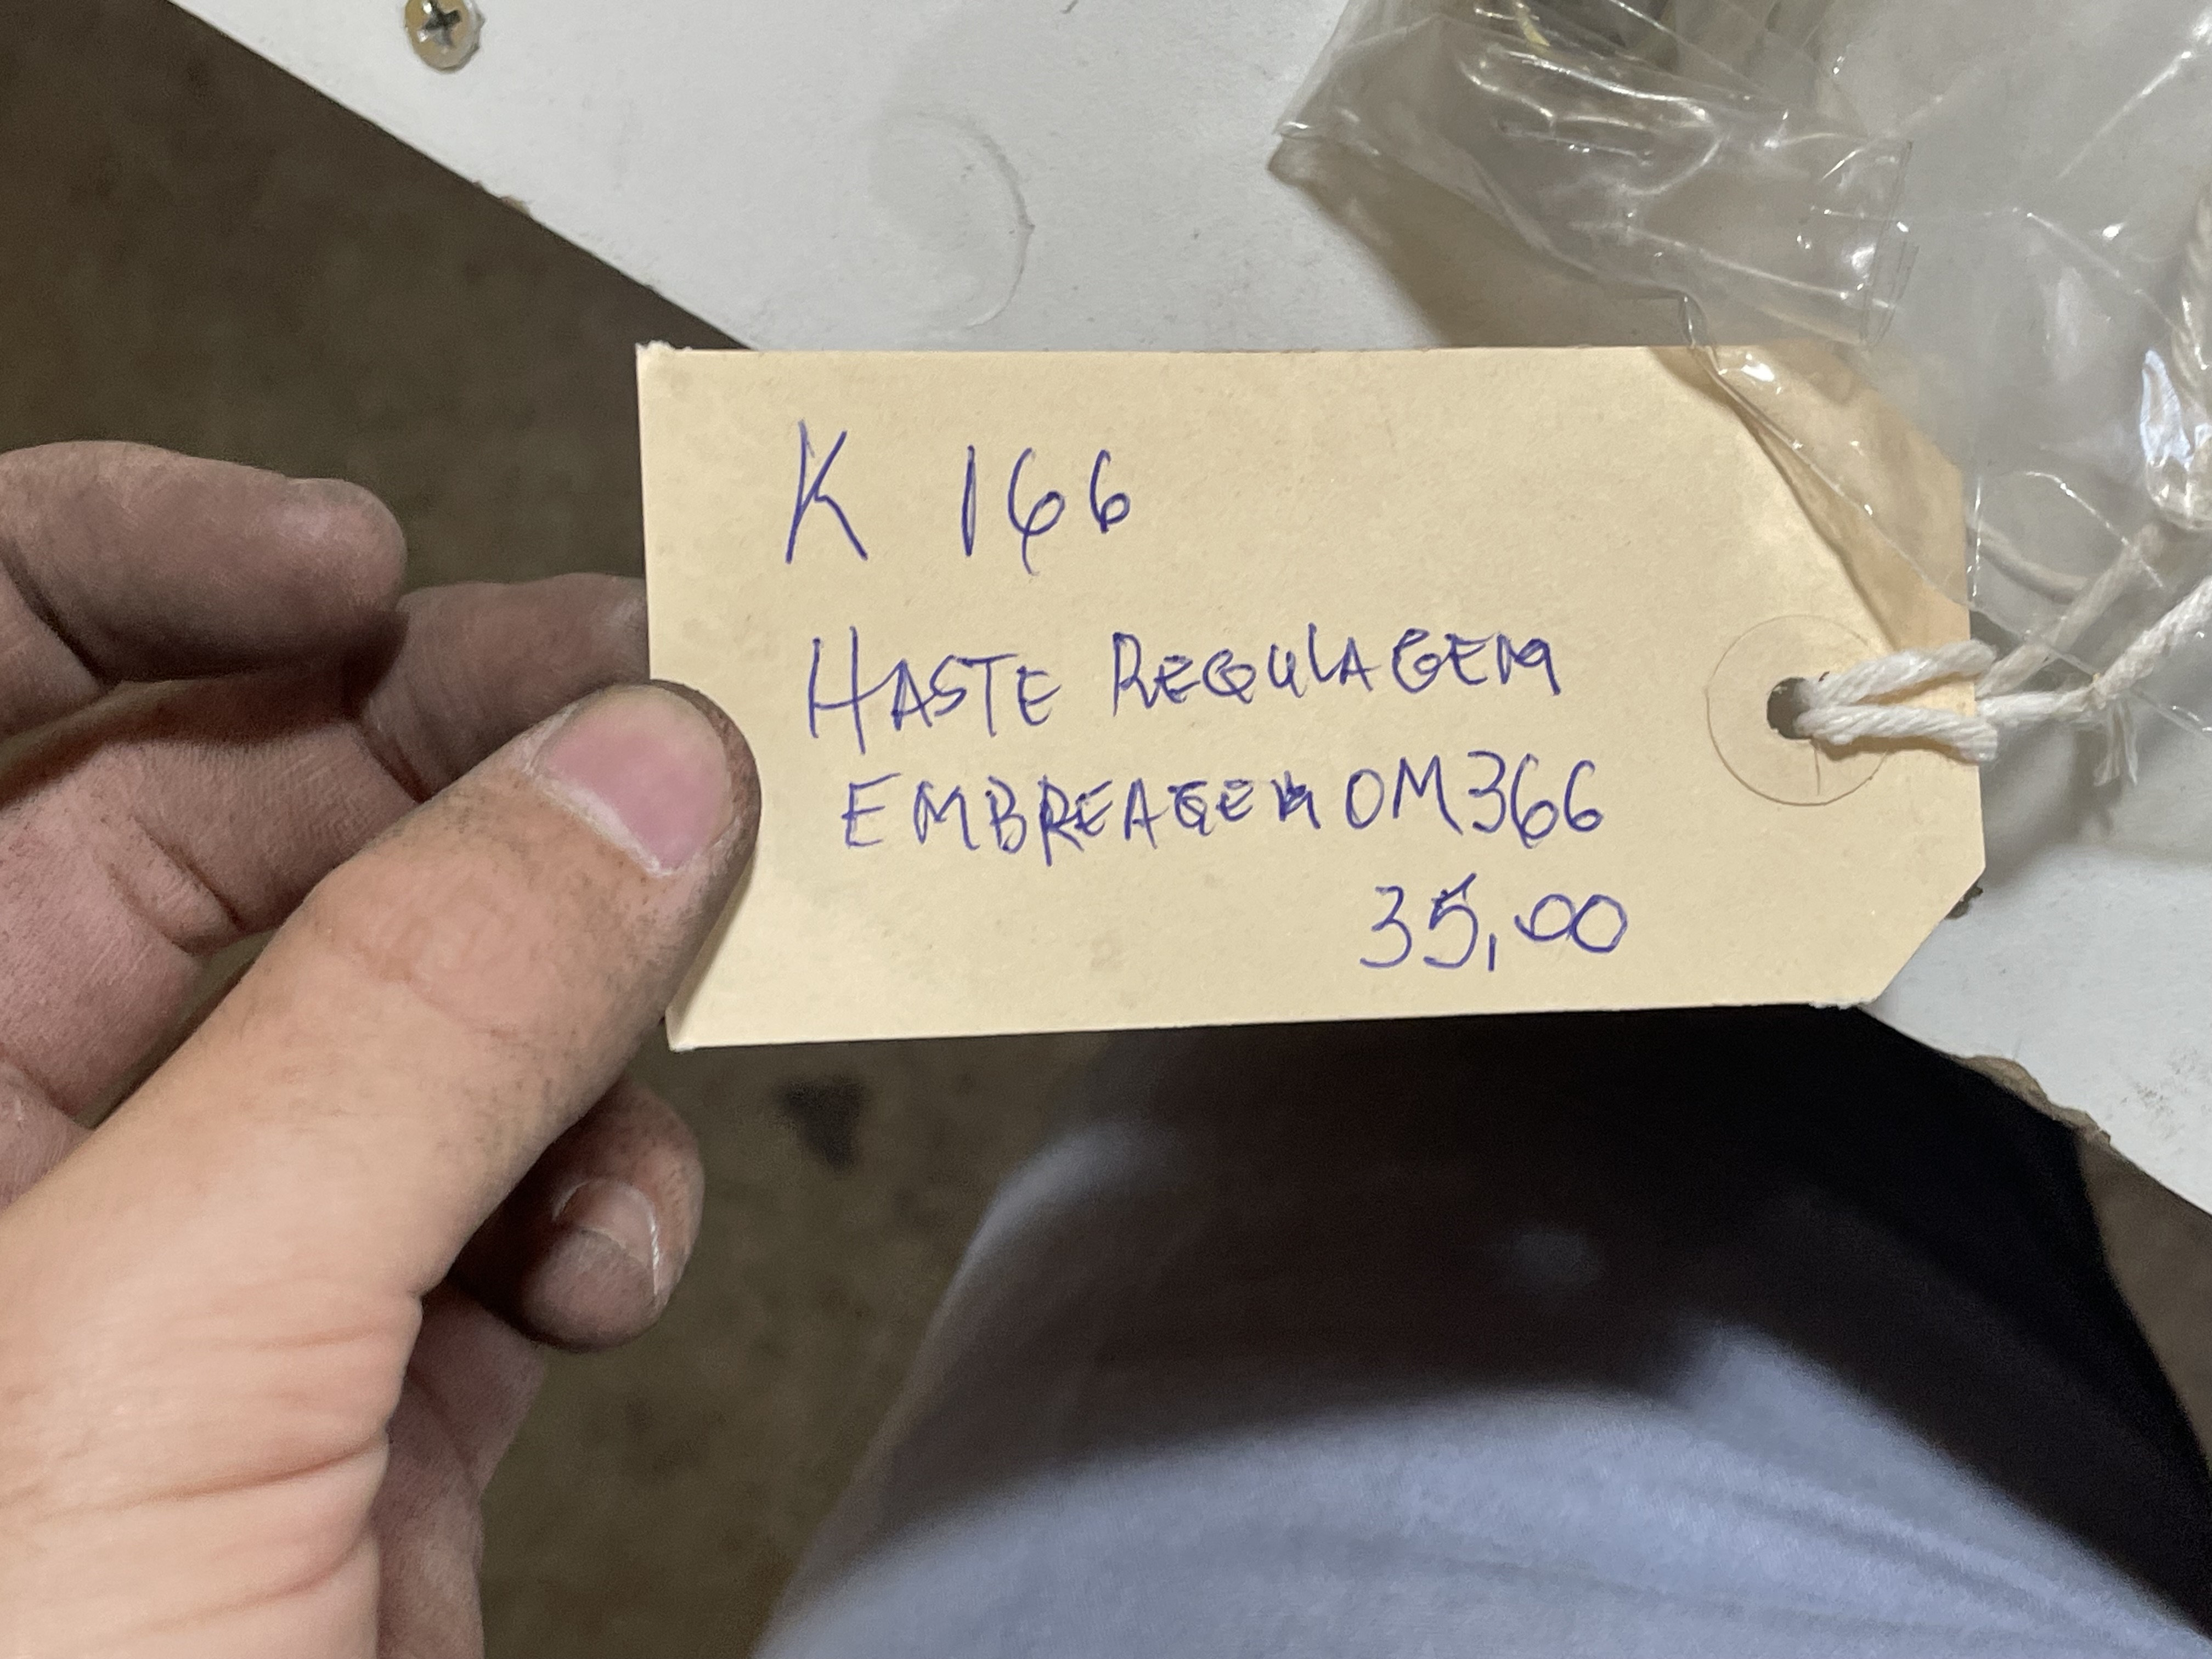 K 166
HASTE REGULAGEM
EMBREAGEM OM366
35,00